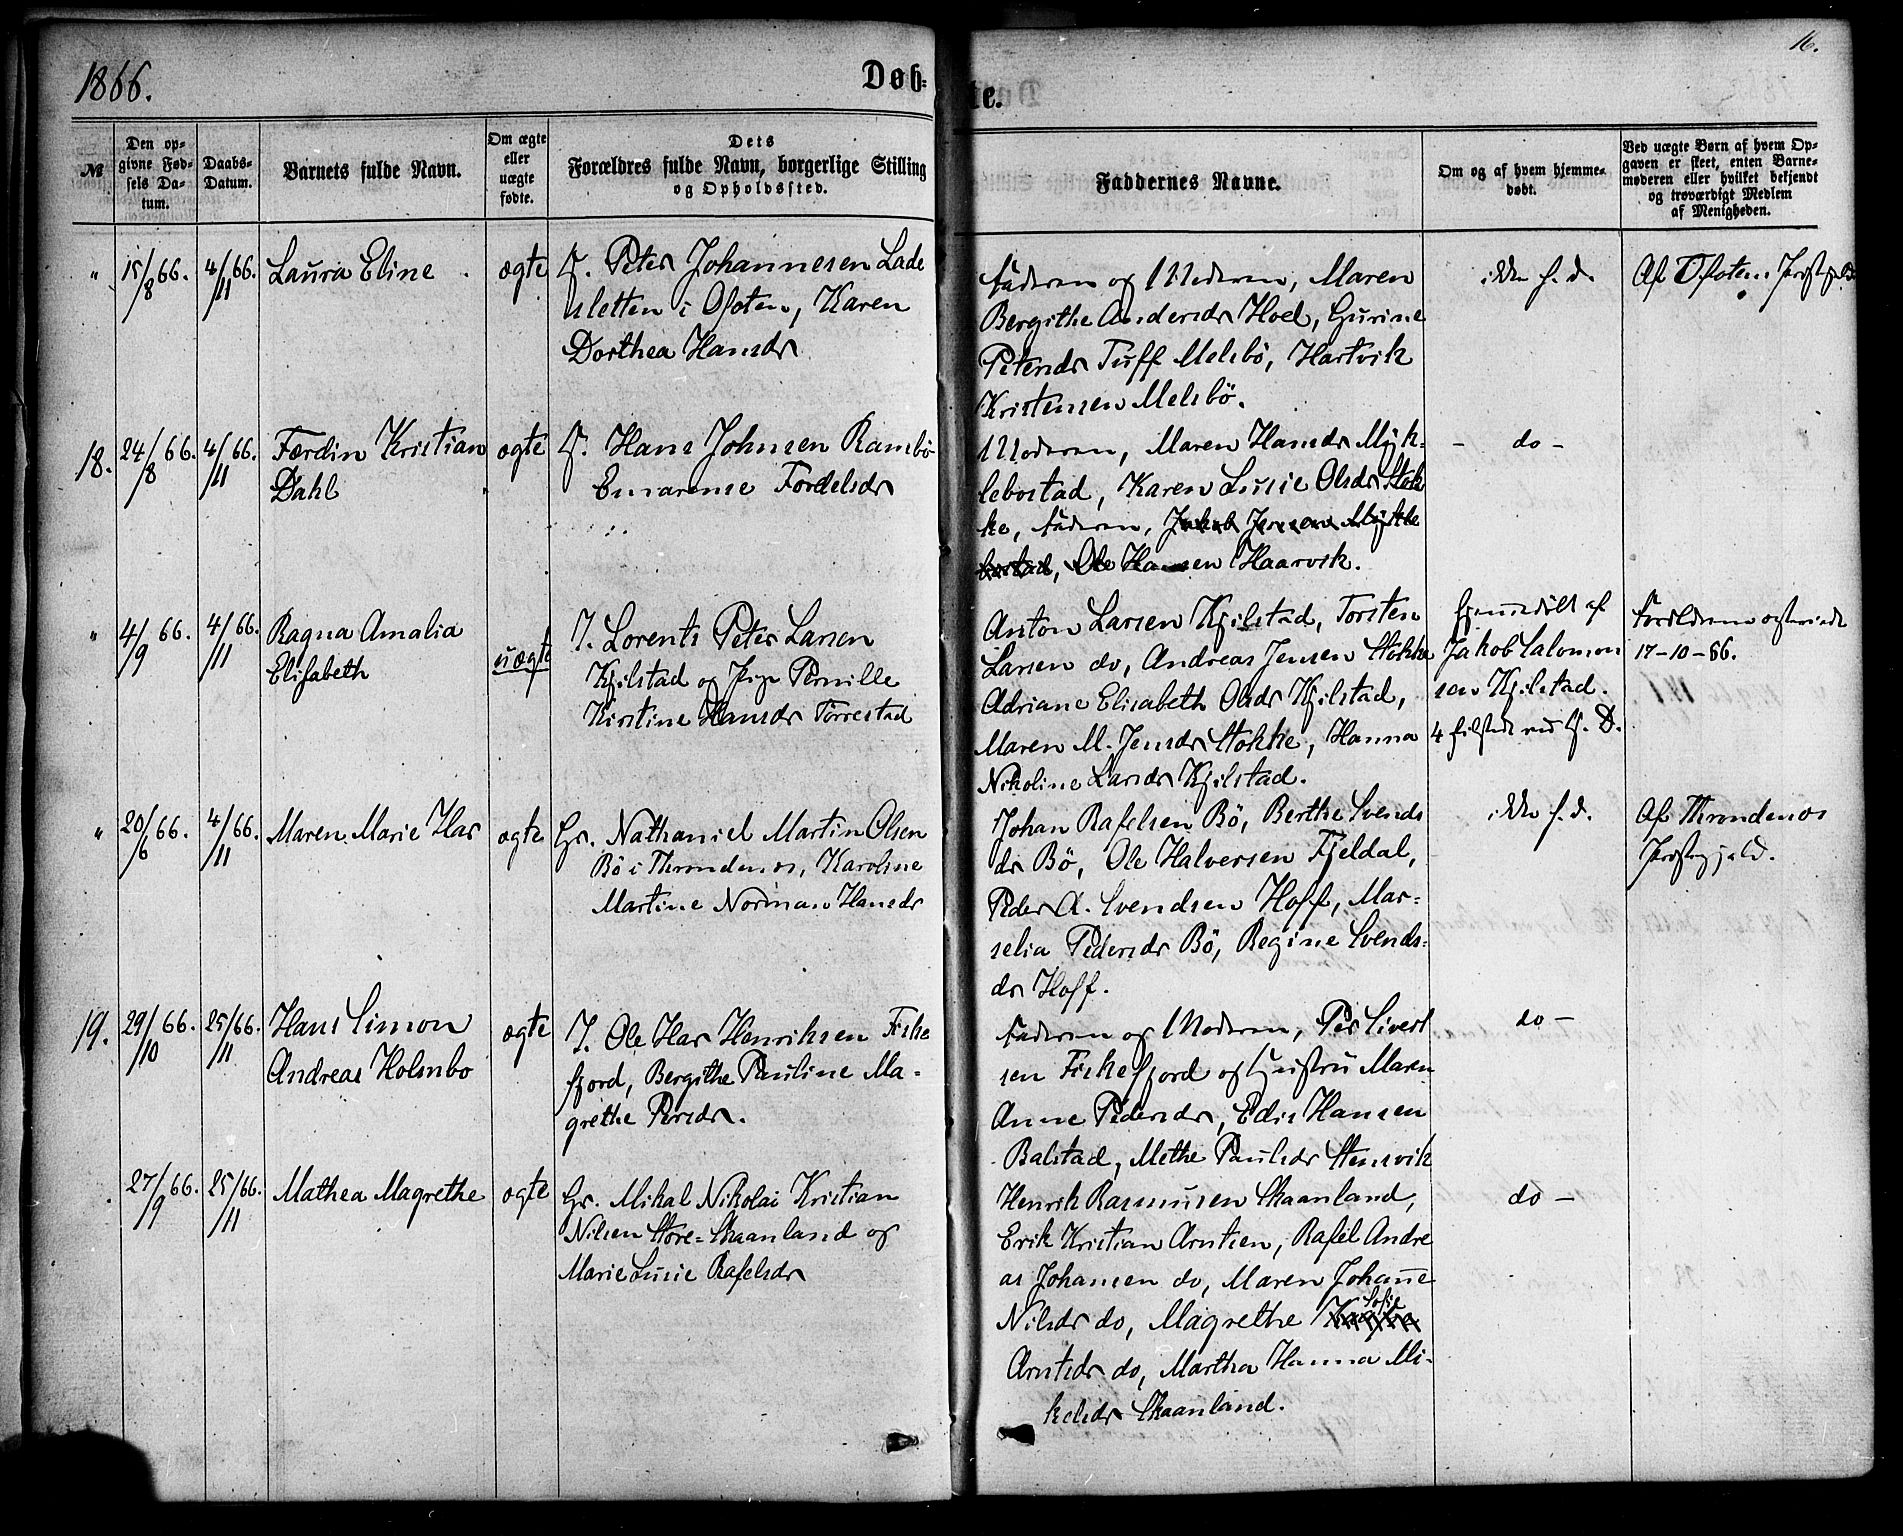 1866.
Døb-
te.
16.
№
Den op-
givne Fød-
sels Da-
tum.
Daabs-
Datum.
Barnets fulde Navn.
Om ægte
eller
uægte
fødte.
Dets
Forældres fulde Navn, borgerlige Stilling
og Opholdssted.
Faddernes Navne.
Om og af hvem hjemme-
døbt.
Ved uægte Børn af hvem Op-
gaven er skeet, enten Barne-
moderen eller hvilket bekjendt
og troværdigt Medlem
af Menigheden.
" 15/8 66. 4/11 66. Laura Eline. ægte
Peter Johannesen Lade
sletten i Ofoten, Karen
Dorthea Hansdr
Faderen og Moderen, Maren
Bergithe Andersdr Hoel, Gurine
Petersdr Tuff Melsbö, Hartvik
Kristensen Melsbö.
ikke h. d.
Af Ofotens Præstgjeld
18. 24/8 66. 4/11 66. Færdin Kristian
Dahl
ægte
Hans Johnsen Ramsbö
Emarense Fordelsdr
Moderen, Maren Hansdr Myk-
lebostad, Karen Lusie Olsdr Stok
ke, Faderen, Jakob Jensen Mykle
bostad, Ole Hansen Haarvik.
- do -
" 4/9 66. 4/11 66. Ragna Amalia
Elisabeth
uægte
I. Lorents Peter Larsen
Kjilstad og Pige Pernille
Kirstine Hansdr Torrestad
Anton Larsen Kjilstad, Torsten
Larsen do, Andreas Jensen Stokke
Adriane Elisabeth Olsdr Kjilstad,
Maren M. Jensdr Stokke, Hanna
Nikoline Larsdr Kjilstad.
Hjemmedöbt af
Jakob Salomon
sen Kjilstad.
Forældrene ægteviede
17-10-66.
" 20/6 66. 4/11 66. Maren Marie Has ægte
Gr. Nathaniel Martin Olsen
Bö i Throndenes, Karoline
Martine Norman Hansdr
Johan Rafelsen Bö, Berthe Svends
dr Bö, Ole Halversen Fjeldal,
Peder A. Svendsen Hoff, Mar-
selia Pedersdr Bö, Regine Svends-
dr Hoff.
ikke h. d.
Af Throndenes
Præstegjeld.
19. 29/10 66. 25/11 66. Hans Simon
Andreas Holmbo
ægte
I. Ole Has Henriksen Fiske
fjord, Bergithe Pauline Ma-
grethe Persdr.
Faderen og Moderen, Per Sivert
sen Fiskefjord og Hustru Maren
Anne Pedersdr, Edis Hansen
Balstad, Methe Paulsdr Stensvik
do -
27/9 66. 25/11 66. Mathea Magrethe ægte
Gr. Mikal Nikolai Kristian
Nilsen Store-Skaanland og
Marie Lusie Rafelsdr
Henrik Rasmusen Skaanland,
Erik Kristian Arntsen, Rafel Andre
as Johansen do, Maren Johanne
Nilsdr do, Magrethe Sofie
Arntsdr do, Martha Hanna Mi-
kelsdr Skaanland.
do -